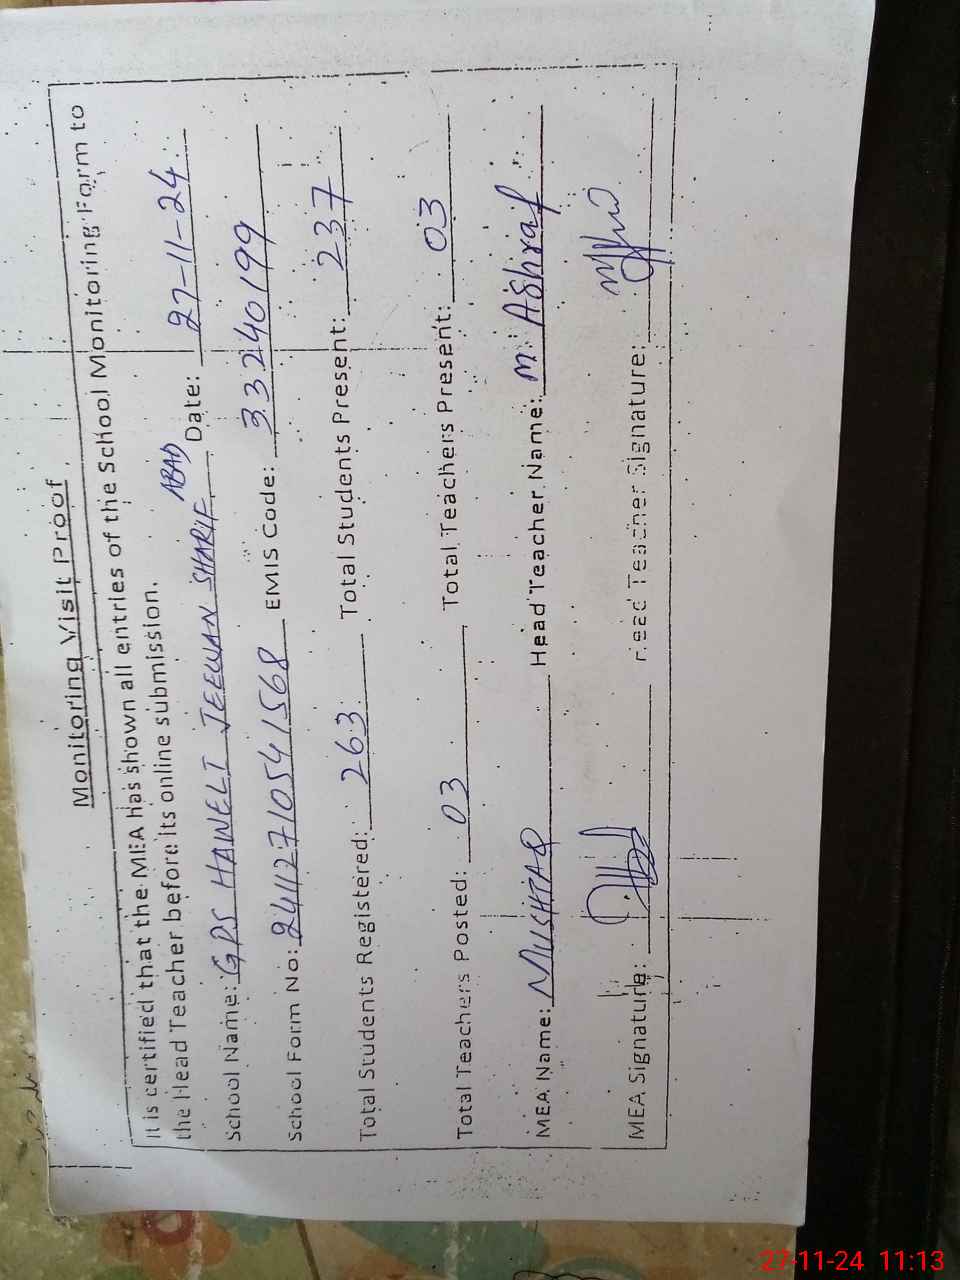 Monitoring Visit Proof
It is certified that the MEA has shown all entries of the School Monitoring Form to
the Head Teacher before its online submission.
School Name: GPS HAWELI JEEWAN SHARIF ABAD Date: 27-11-24
School Form No: 241127105541568 EMIS Code: 33240199
Total Students Registered: 263 Total Students Present: 237
Total Teachers Posted: 03 Total Teachers Present: 03
MEA Name: MUSHTAQ Head Teacher Name: M. Ashraf
MEA Signature: Head Teacher Signature:
27-11-24 11:13